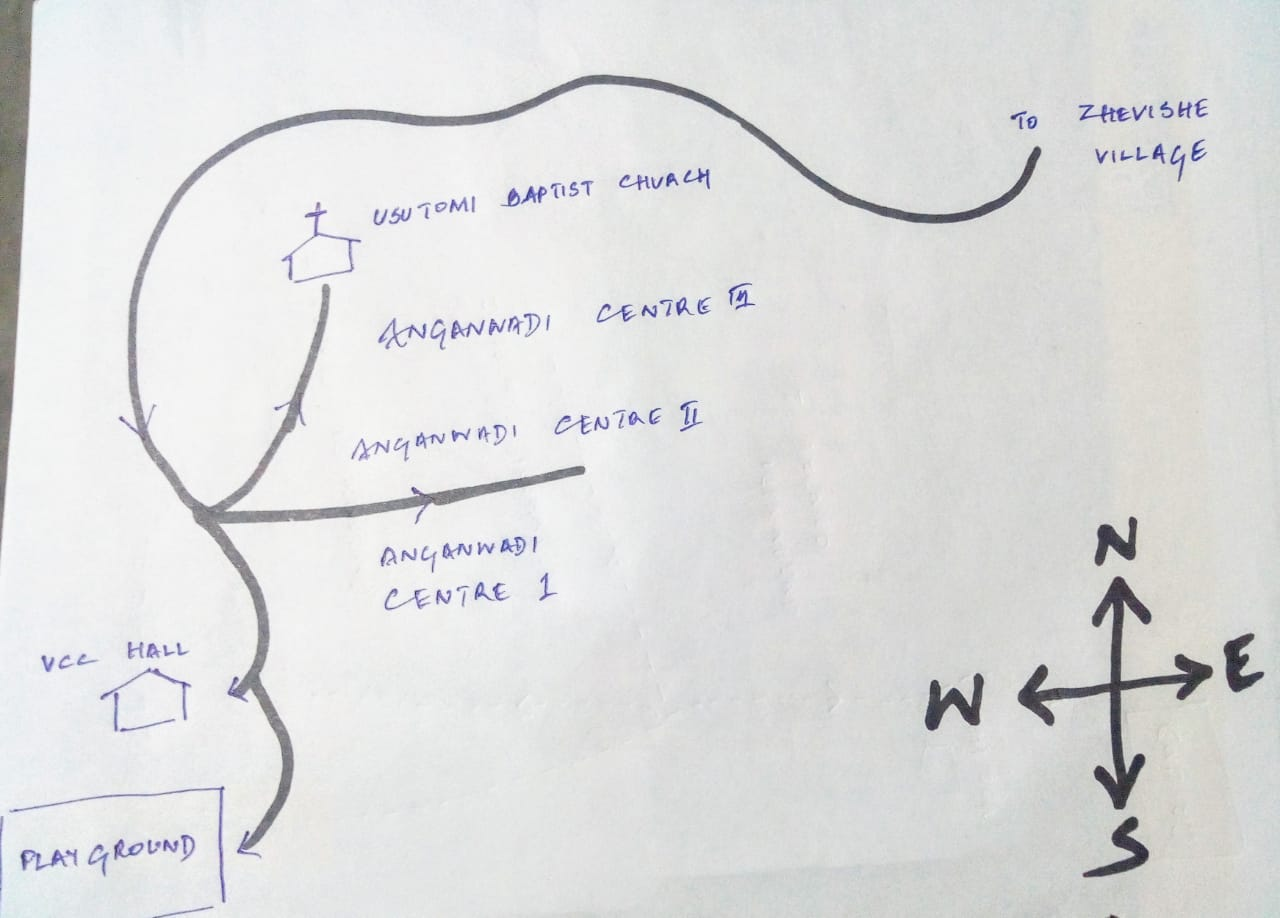 TO ZHEVISHE
VILLAGE
USUTOMI BAPTIST CHURCH
ANGANWADI CENTRE III
ANGANWADI CENTRE II
ANGANWADI
CENTRE 1
VCC HALL
PLAY GROUND
N
W E
S